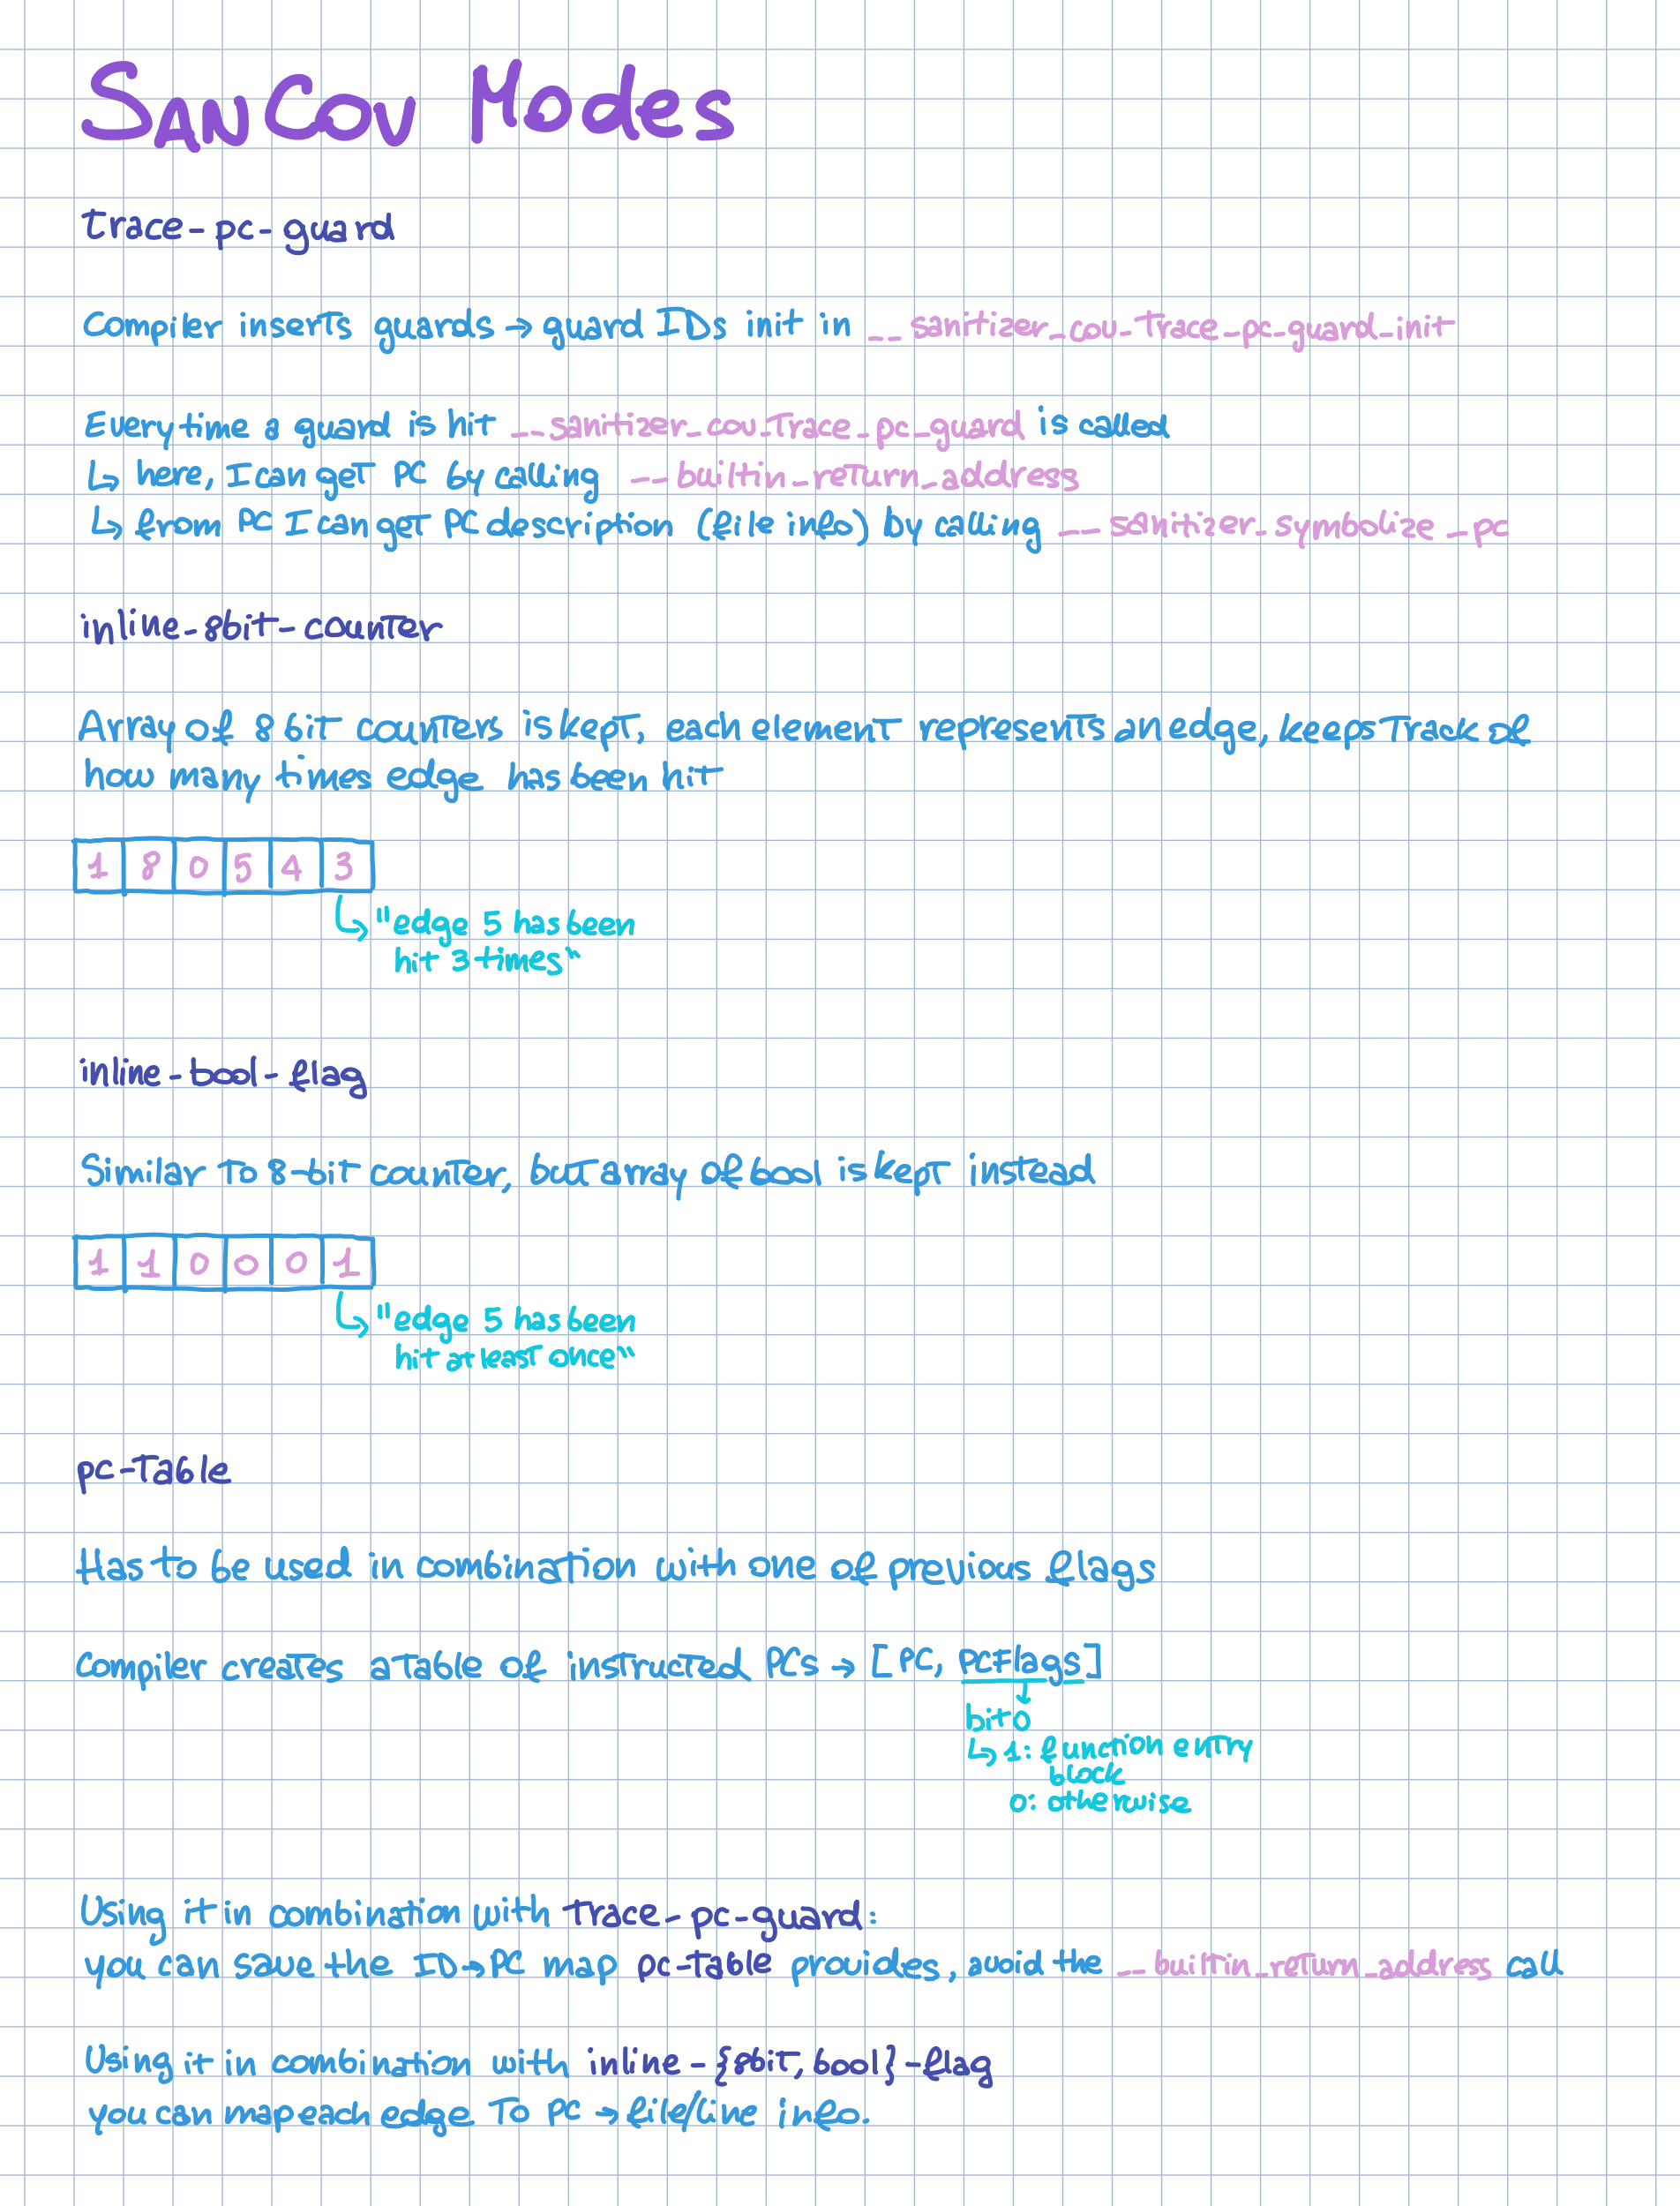 SanCov Modes
trace-pc-guard
Compiler inserts guards → guard IDs init in __sanitizer_cov_trace_pc_guard_init
Every time a guard is hit __sanitizer_cov_trace_pc_guard is called
↳ here, I can get PC by calling __builtin_return_address
↳ from PC I can get PC description (file info) by calling __sanitizer_symbolize_pc
inline-8bit-counter
Array of 8 bit counters is kept, each element represents an edge, keeps track of
how many times edge has been hit
1 8 0 5 4 3
↳ "edge 5 has been
hit 3 times"
inline-bool-flag
Similar to 8-bit counter, but array of bool is kept instead
1 1 0 0 0 1
↳ "edge 5 has been
hit at least once"
pc-table
Has to be used in combination with one of previous flags
Compiler creates a table of instructed PCs → [PC, PCFlags]
↓
bit 0
↳ 1: function entry
block
0: otherwise
Using it in combination with trace-pc-guard:
you can save the ID→PC map pc-table provides, avoid the __builtin_return_address call
Using it in combination with inline-{8bit, bool}-flag
you can map each edge to PC → file/line info.